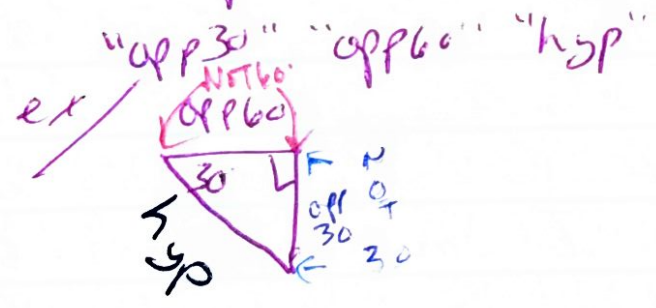 "opp30" "opp60" "hyp"
ex
NOT60
opp60
30
opp
30
NOT
30
hyp